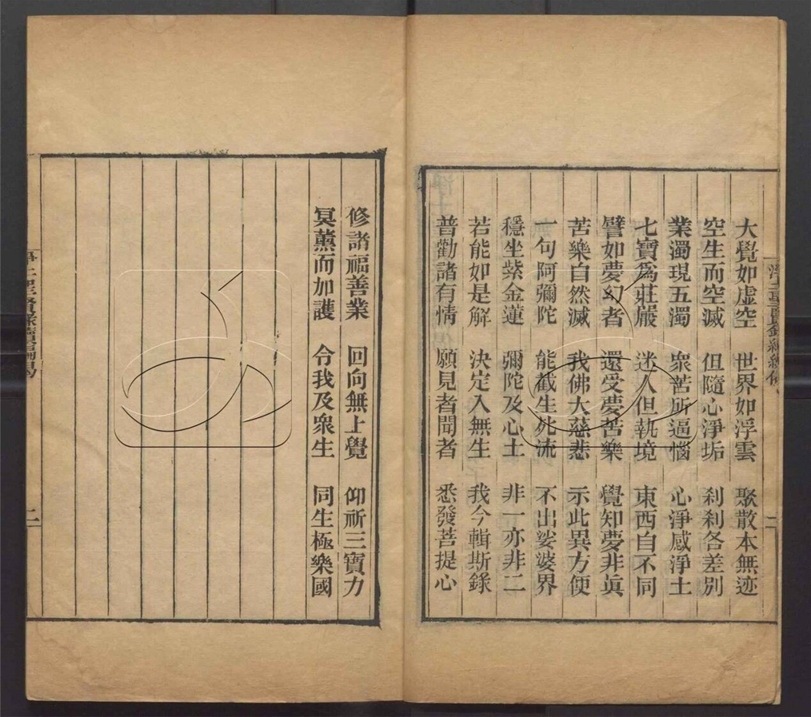 大覺如虛空 世界如浮雲 聚散本無迹
空生而空滅 但隨心淨垢 刹刹各差別
業濁現五濁 衆苦所逼惱 心淨感淨土
七寶爲莊嚴 迷人但執境 東西自不同
譬如夢幻者 還受夢苦樂 覺知夢非眞
苦樂自然滅 我佛大慈悲 示此異方便
一句阿彌陀 能截生死流 不出娑婆界
穩坐紫金蓮 彌陀及心土 非一亦非二
若能如是解 決定入無生 我今輯斯錄
普勸諸有情 願見者聞者 悉發菩提心
修諸福善業 回向無上覺 仰祈三寶力
冥薰而加護 令我及衆生 同生極樂國
二